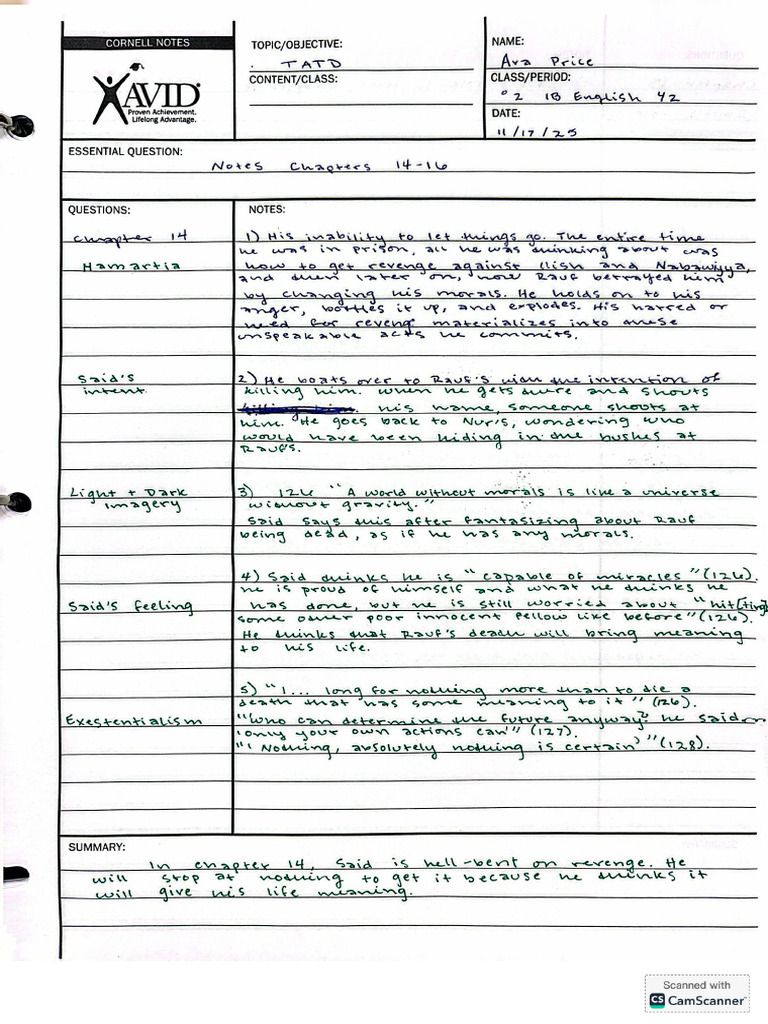 CORNELL NOTES
AVID®
Proven Achievement.
Lifelong Advantage.
TOPIC/OBJECTIVE:
. TATD
CONTENT/CLASS:
NAME:
Ava Price
CLASS/PERIOD:
°2 IB English Y2
DATE:
11/17/25
ESSENTIAL QUESTION:
Notes Chapters 14-16
QUESTIONS:
NOTES:
Chapter 14
Hamartia
1) His inability to let things go. The entire time
he was in prison, all he was thinking about was
how to get revenge against Ilish and Nabawiyya,
and then later on, how Rauf betrayed him
by changing his morals. He holds on to his
anger, bottles it up, and explodes. His hatred or
need for reveng materializes into these
unspeakable acts he commits.
Said's
intent
2) He boats over to Rauf's with the intention of
killing him. When he gets there and shouts
killing him. his name, someone shoots at
him. He goes back to Nur's, wondering who
would have been hiding in the bushes at
Rauf's.
Light + Dark
Imagery
3) 126 "A world without morals is like a universe
without gravity."
Said says this after fantasizing about Rauf
being dead, as if he has any morals.
Said's feeling
4) Said thinks he is "capable of miracles" (126).
he is proud of himself and what he thinks he
has done, but he is still worried about "hit[ting]
some other poor innocent fellow like before" (126).
He thinks that Rauf's death will bring meaning
to his life.
Exestentialism
5) "I... long for nothing more than to die a
death that has some meaning to it" (126).
"Who can determine the future anyway? he said,
'only your own actions can'" (127).
"'Nothing, absolutely nothing is certain'" (128).
SUMMARY:
In chapter 14, Said is hell-bent on revenge. He
will stop at nothing to get it because he thinks it
will give his life meaning.
Scanned with
CS CamScanner